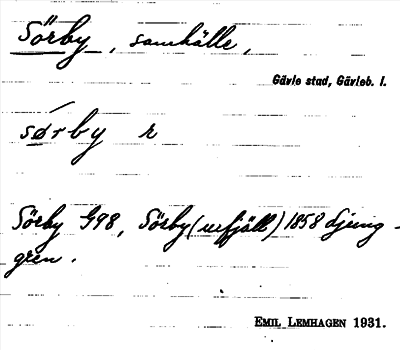 Sörby, samhälle,
Gävle stad, Gävleb. l.
sørby r
Sörby G98, Sörby (urfjäll) 1858 Ljung-
gren.
EMIL LEMHAGEN 1931.